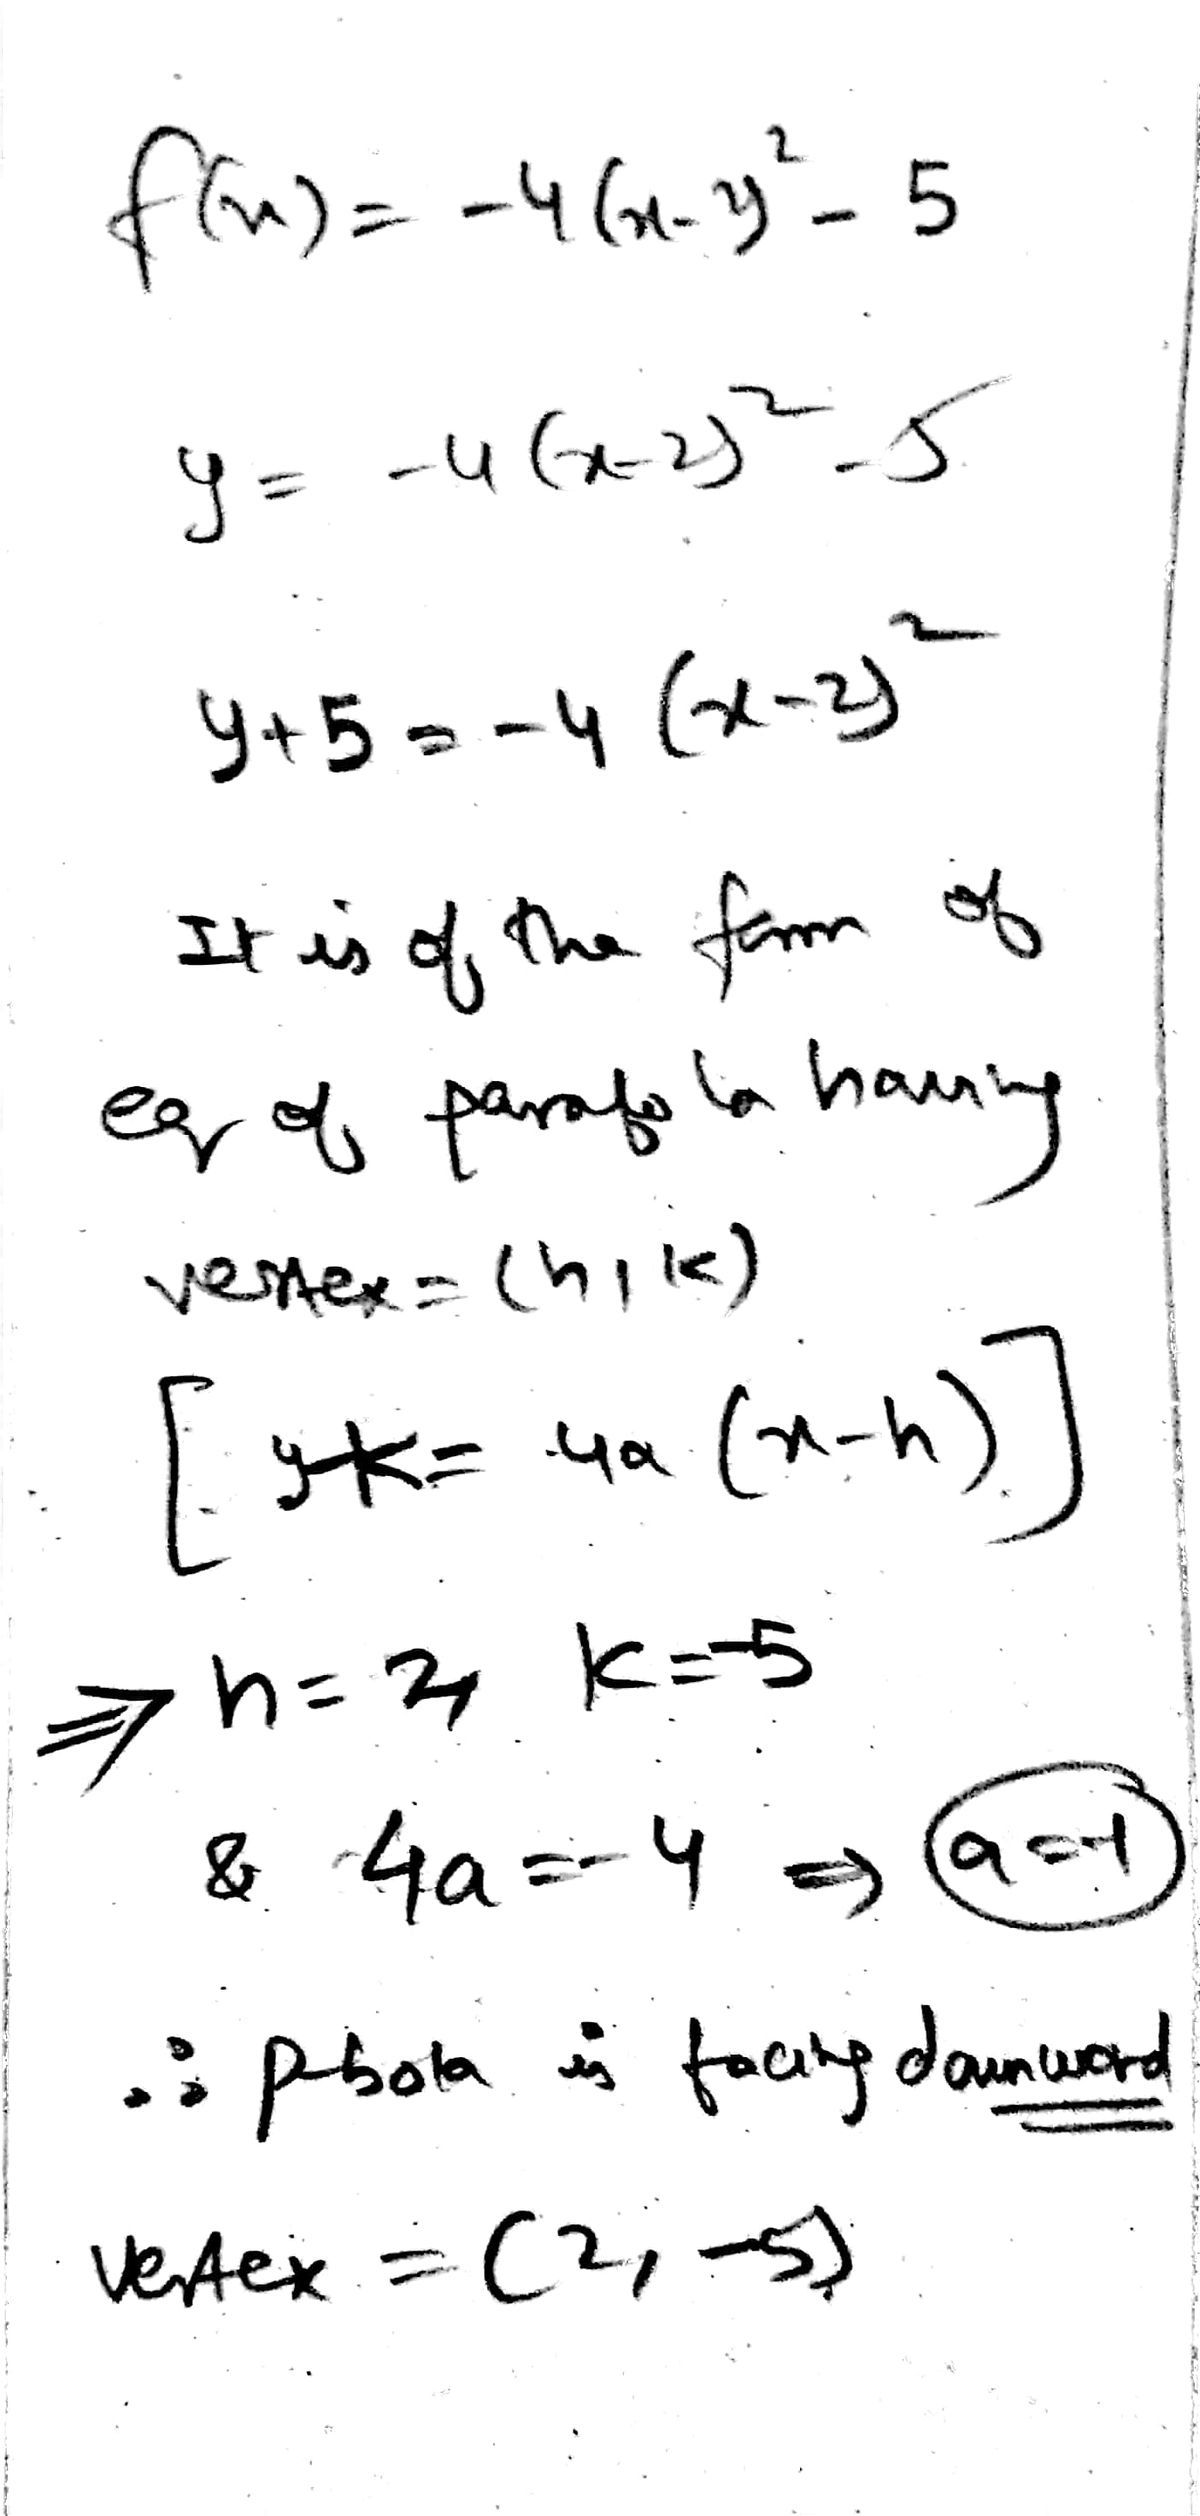 f(x) = -4(x-2)² - 5
y = -4(x-2)² - 5
y+5 = -4 (x-2)²
It is of the form of
eq of parabola having
vertex = (h, k)
[y-k = 4a (x-h)]
⇒ h = 2, k = -5
& 4a = -4 ⇒ a = -1
∴ p-bola is facing downward
vertex = (2, -5)